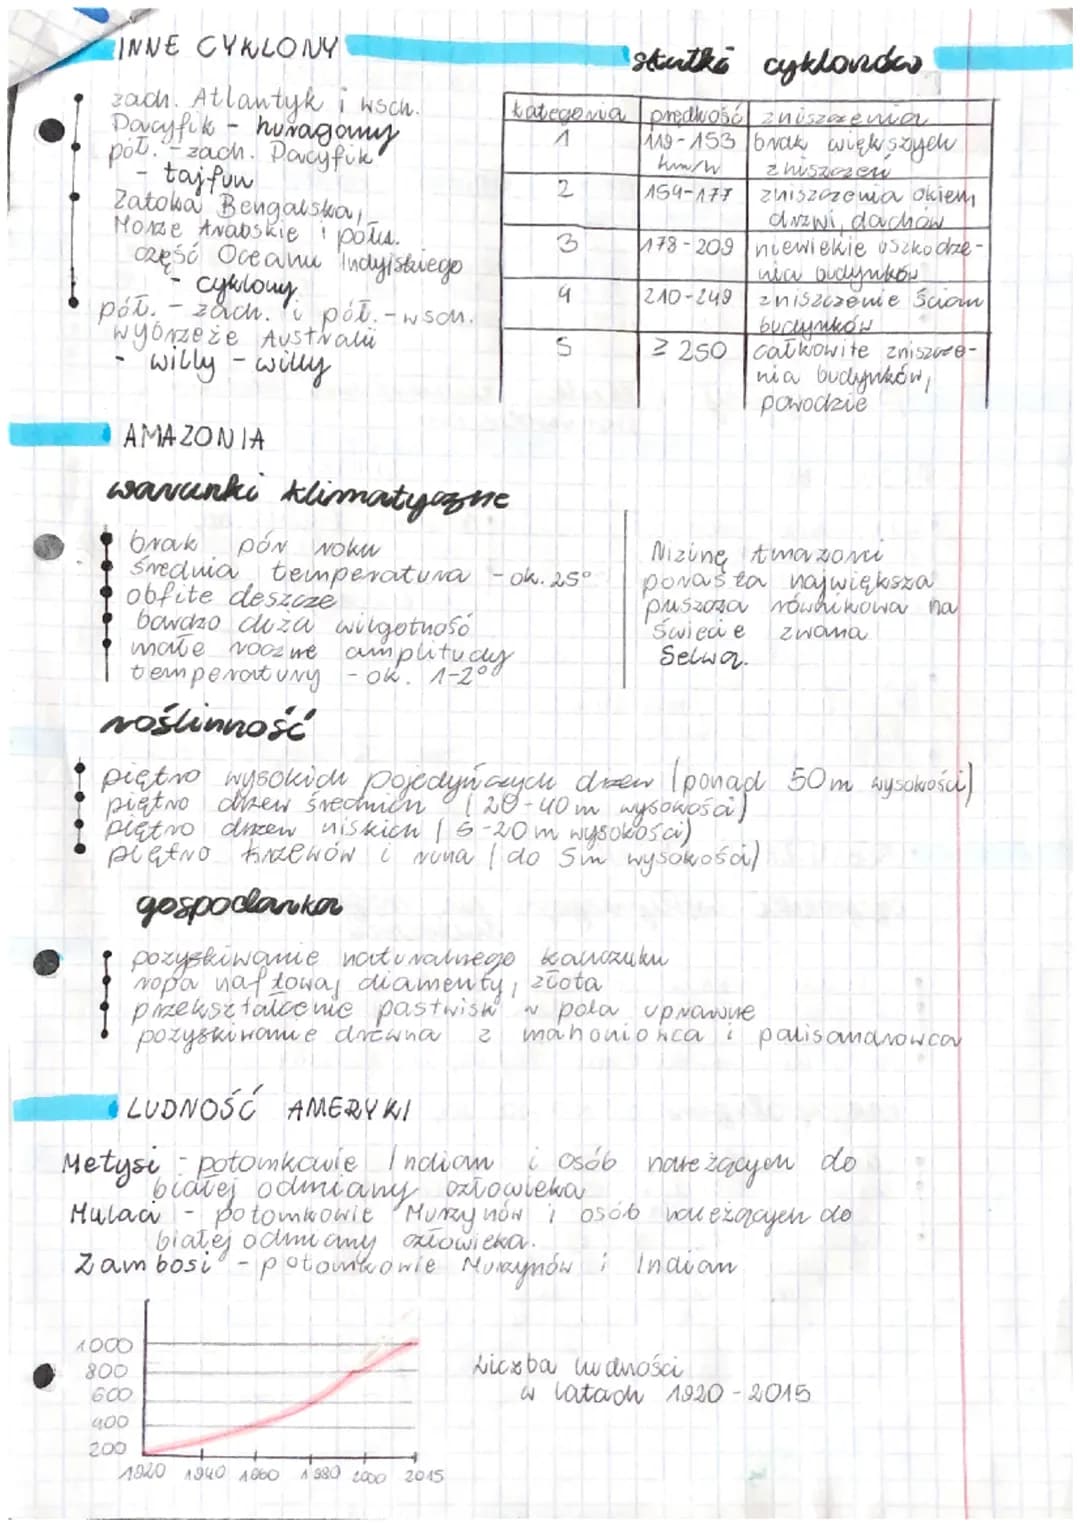 INNE CYKLONY
zach. Atlantyk i wsch.
Pacyfik - huragany
pół. - zach. Pacyfik
- tajfun
Zatoka Bengalska,
Morze Arabskie i połu.
część Oceanu Indyjskiego
- cyklony
pół. - zach. i pół. - wsch.
wybrzeże Australii
- willy - willy
skutki cyklonów
kategoria prędkość zniszczenia
1 119-153 km/h brak większych zniszczeń
2 154-177 zniszczenia okien, drzwi, dachów
3 178-209 niewielkie uszkodzenia budynków
4 210-249 zniszczenie ścian budynków
5 ≥ 250 całkowite zniszczenia budynków, powodzie
AMAZONIA
warunki klimatyczne
brak pór roku
średnia temperatura - ok. 25°
obfite deszcze
bardzo duża wilgotność
małe roczne amplitudy
temperatury - ok. 1-2°
Nizinę Amazonii
porasta największa
puszcza równikowa na
świecie zwana
Selwą.
roślinność
piętro wysokich pojedyńczych drzew (ponad 50m wysokości)
piętro drzew średnich (20-40m wysokości)
piętro drzew niskich (5-20m wysokości)
piętro krzewów i runa (do 5m wysokości)
gospodarka
pozyskiwanie naturalnego kauczuku
ropa naftowa, diamenty, złota
przekształcenie pastwisk w pola uprawne
pozyskiwanie drewna z mahoniowca i palisandrowca
LUDNOŚĆ AMERYKI
Metysi - potomkowie Indian i osób należących do
białej odmiany człowieka
Mulaci - potomkowie Murzynów i osób należących do
białej odmiany człowieka.
Zambosi - potomkowie Murzynów i Indian
1000
800
600
400
200
1920 1940 1960 1980 2000 2015
Liczba ludności
w latach 1920-2015